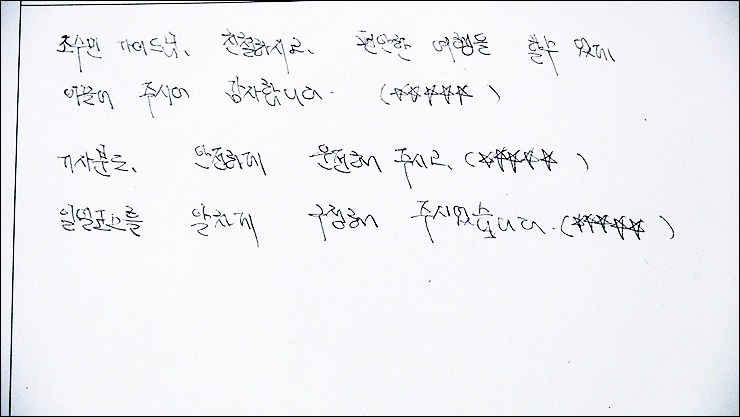 조수민 가이드님, 친절하시고, 편안한 여행을 할수 있게
이끌어 주시어 감사합니다. (☆☆☆☆☆)
기사분도, 안전하게 운전해 주시고, (☆☆☆☆☆)
일일코스를 알차게 구성해 주시었습니다. (☆☆☆☆☆)